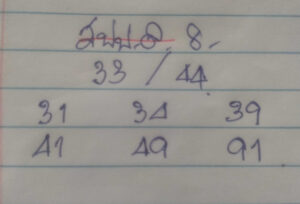 สปป.ล. 8.
33 / 44
31 34 39
41 49 91